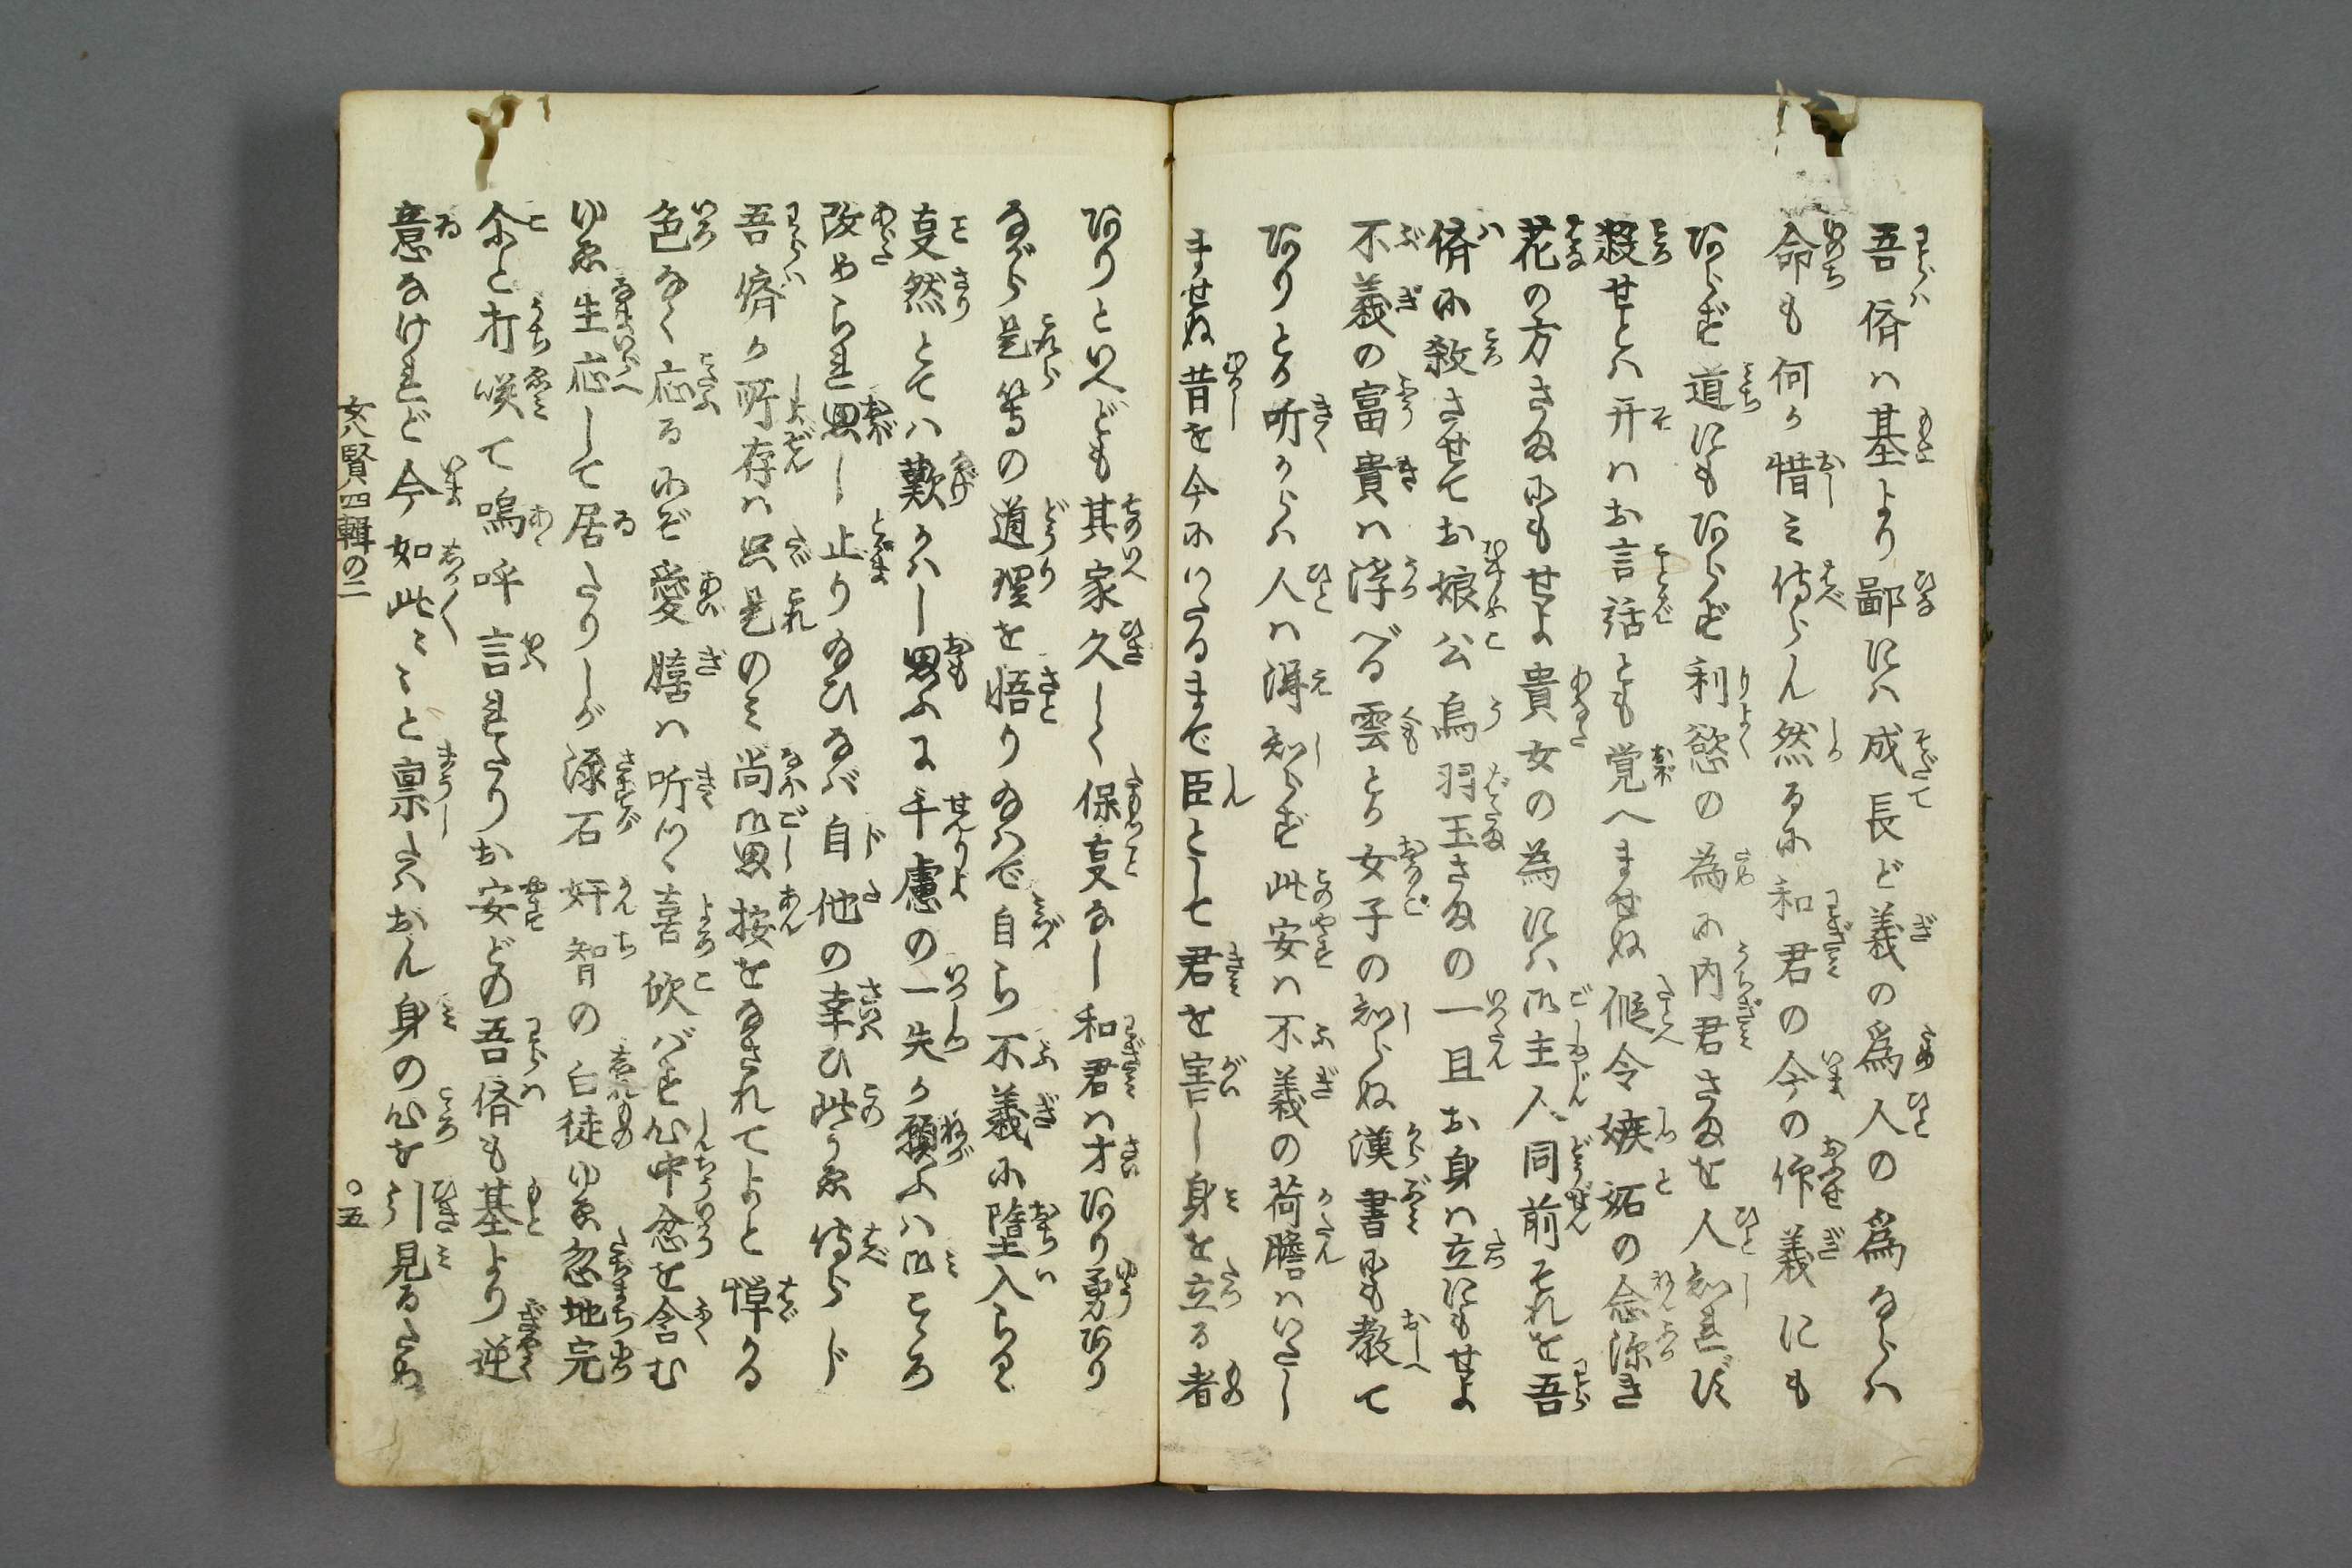 吾儕ハ基より鄙にハ成長ど義の為人の為ならハ
命も何か惜ミ侍らん然るに和君の今の仰義にも
あらず道にもあらず利慾の為に内君さまを人知れず
殺せとハ开ハお言話とも覚へませぬ仮令嫉妬の念深き
花の方さまにもせよ貴女の為にハ御主人同前それを吾
儕に殺させてお娘公烏羽玉さまの一旦お身ハ立にもせよ
不義の富貴ハ浮べる雲とか女子の知らぬ漢書にも教て
ありとか听からハ人ハ得知らず此安ハ不義の荷膽ハいたし
ませぬ昔を今にいたるまで臣として君を害し身を立る者
ありといへども其家久しく保事なし和君ハ才あり勇あり
ながら是等の道理を悟り給ハで自ら不義に墮入らるゝ
事然とてハ歎かハし思ふに千慮の一失か願ふハ御こゝろ
改められ思し止り給ひなバ自他の幸ひ此うゑ侍らじ
吾儕が所存ハ只是のミ尚御思按をなされてよと憚かる
色なく応るにぞ愛膳ハ听つゝ喜欣バず心中忿を含む
ゆゑ生応して居たりしが深石奸智の白徒ゆゑ忽地完
尓と打咲て嗚呼言れたりお安どの吾儕も基より逆
意なけれど今如此〻〻と稟せしハおん身の心を引見るため
女八賢四輯の二 〇五